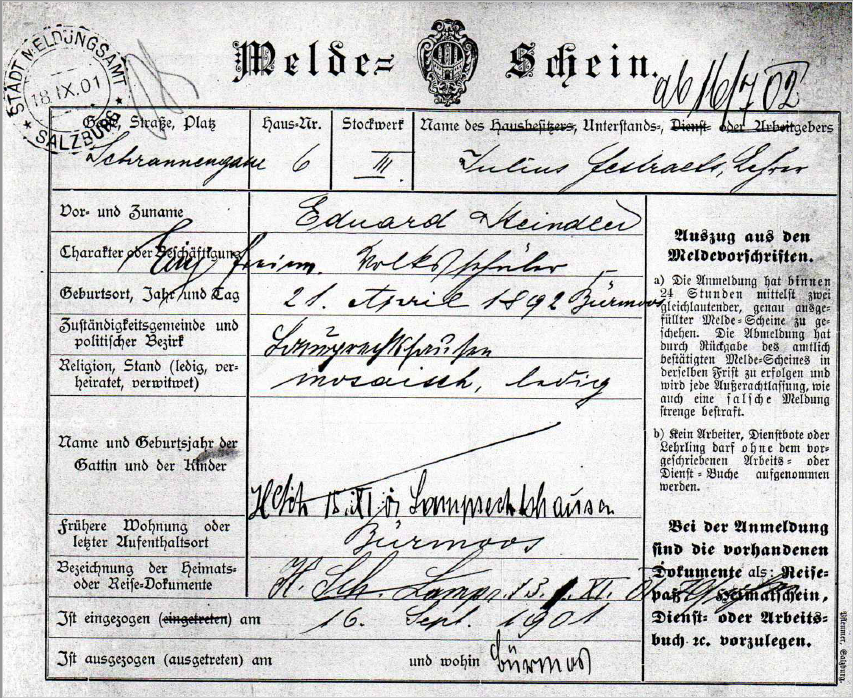 STADT MELDUNGSAMT
18.IX.01
SALZBURG
Melde- Schein.
ab 16/7 02
Gasse, Straße, Platz
Haus-Nr.
Stockwerk
Name des Hausbesitzers, Unterstands-, Dienst- oder Arbeitgebers
Schrannengasse 6 III Julius Lehrer
Vor- und Zuname
Eduard
Charakter oder Beschäftigung
Volksschüler
Geburtsort, Jahr und Tag
21. April 1892 Bürmoos
Zuständigkeitsgemeinde und
politischer Bezirk
Lamprechtshausen
Religion, Stand (ledig, ver-
heiratet, verwitwet)
mosaisch, ledig
Name und Geburtsjahr der
Gattin und der Kinder
Lamprechtshausen
Frühere Wohnung oder
letzter Aufenthaltsort
Bürmoos
Bezeichnung der Heimats-
oder Reise-Dokumente
H. Sch. Lampr.
Ist eingezogen (eingetreten) am
16. Sept. 1901
Ist ausgezogen (ausgetreten) am
und wohin Bürmos
Auszug aus den
Meldevorschriften.
a) Die Anmeldung hat binnen
24 Stunden mittelst zwei
gleichlautender, genau ausge-
füllter Melde-Scheine zu ge-
schehen. Die Abmeldung hat
durch Rückgabe des amtlich
bestätigten Melde-Scheines in
derselben Frist zu erfolgen und
wird jede Außerachtlassung, wie
auch eine falsche Meldung
strenge bestraft.
b) Kein Arbeiter, Dienstbote oder
Lehrling darf ohne dem vor-
geschriebenen Arbeits- oder
Dienst-Buche aufgenommen
werden.
Bei der Anmeldung
sind die vorhandenen
Dokumente als: Reise-
paß, Heimatschein,
Dienst- oder Arbeits-
buch ꝛc. vorzulegen.